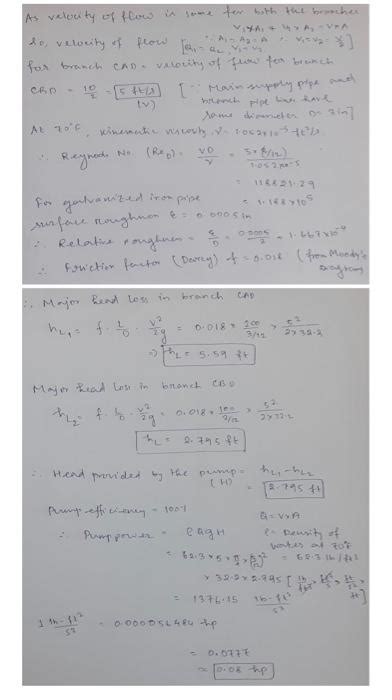 As velocity of flow is same for both the branches
V₁×A₁ + V₂×A₂ = V×A
So, velocity of flow [Q₁ = Q₂, V₁ = V₂ ∵ A₁ = A₂ = A ∴ V₁ = V₂ = V/2]
for branch CAD = velocity of flow for branch
CBD = 10/2 = 5 ft/s (V) [∵ Main supply pipe and branch pipe line have same diameter D = in]
At 70°F, kinematic viscosity, ν = 1.052×10⁻⁵ ft²/s.
∴ Reynolds No (Re_D) = VD/ν =
= 118821.29
= 1.188×10⁵
For galvanized iron pipe
surface roughness ε = 0.0005 in
∴ Relative roughness = ε/D = = 1.667×10⁻⁴
∴ Friction factor (Darcy) f = 0.018 (from Moody's Diagram)
∴ Major head loss in branch CAD
h_L₁ = f · L/D · V²/2g = 0.018 × 200/(3/12) × 5²/(2×32.2)
⇒ h_L = 5.59 ft
Major Head Loss in branch CBD
h_L₂ = f · L/D · V²/2g = 0.018 × 100/(3/12) × 5²/(2×32.2)
h_L = 2.795 ft
∴ Head provided by the pump (H) = h_L₁ - h_L₂
= 2.795 ft
Pump efficiency = 100% Q = V×A
∴ Pump power = ρQgH ρ = Density of water at 70°F
= 62.3 × 5 × = 62.3 lb/ft³
× 32.2 × 2.795
= 1376.15 lb-ft²/s³
1 lb-ft²/s³ = 0.000056484 hp
= 0.0777
= 0.08 hp